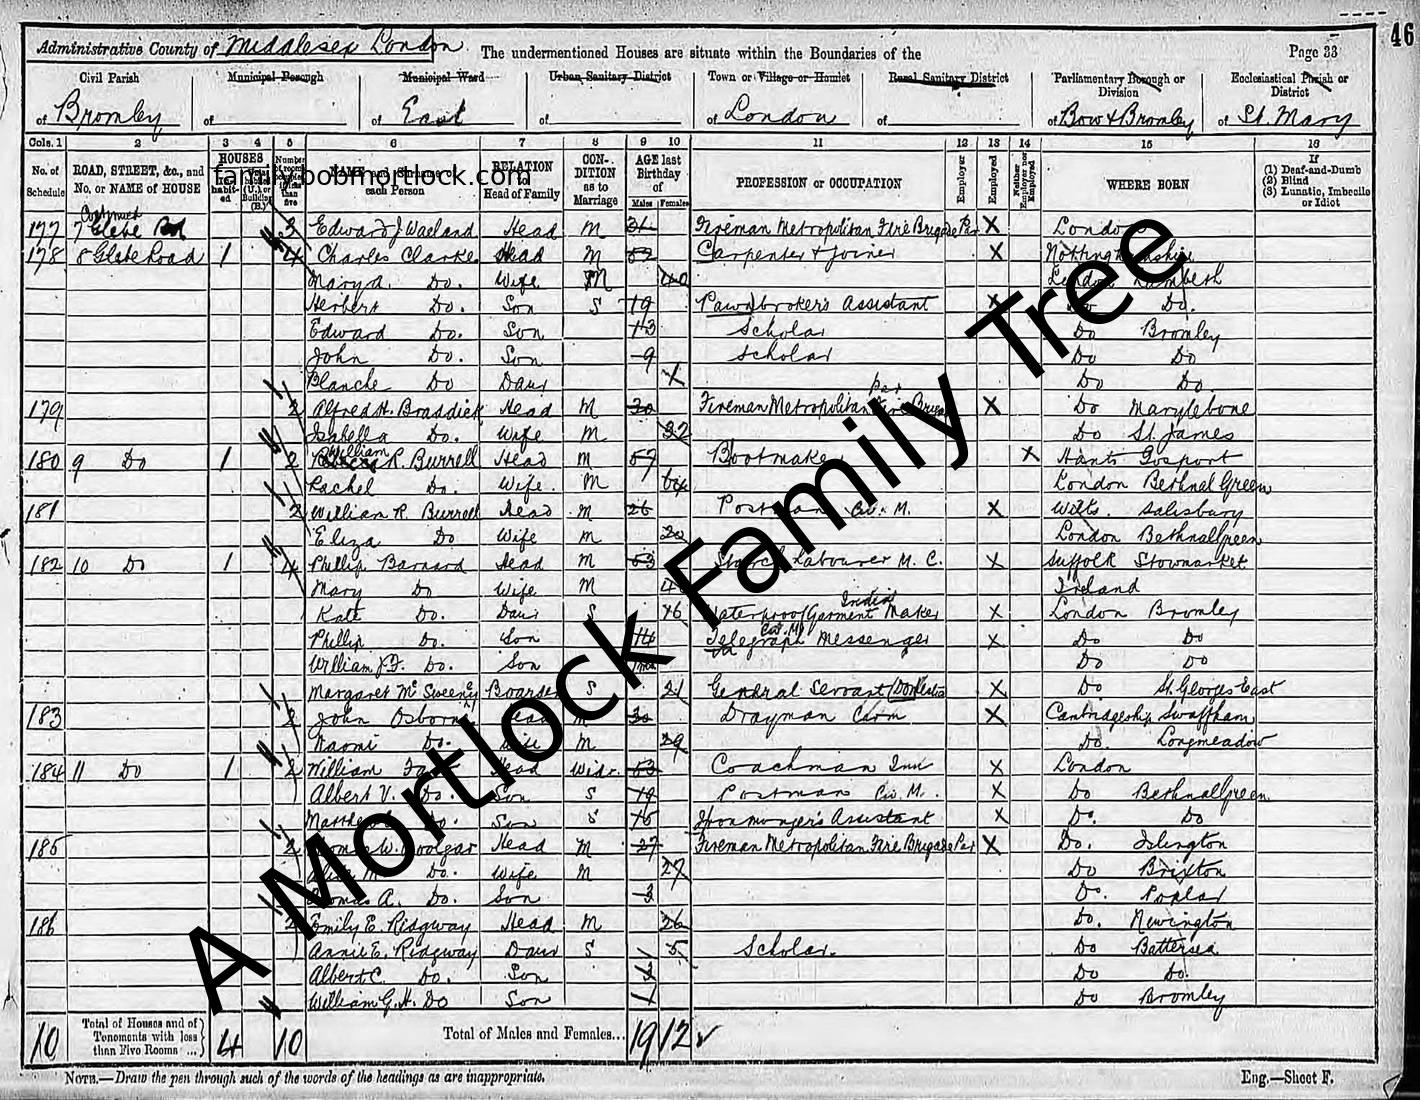 46
Administrative County of Middlesex London The undermentioned Houses are situate within the Boundaries of the Page 33
Civil Parish Municipal Borough Municipal Ward Urban Sanitary District Town or Village or Hamlet Rural Sanitary District Parliamentary Borough or Division Ecclesiastical Parish or District
of Bromley of of East of of London of of Bow & Bromley of St. Mary
Cols. 1 2 3 4 5 6 7 8 9 10 11 12 13 14 15 16
No. of Schedule ROAD, STREET, &c., and No. or NAME of HOUSE HOUSES each Person RELATION to Head of Family CONDITION as to Marriage AGE last Birthday of Males Females PROFESSION or OCCUPATION Employer Employed Neither Employer nor Employed WHERE BORN If (1) Deaf-and-Dumb (2) Blind (3) Lunatic, Imbecile or Idiot
family.bobmortlock.com
177 7 Glebe Rd 3 Edward J Waeland Head M Fireman Metropolitan Fire Brigade Par X London
178 8 Glebe Road 1 4 Charles Clarke Head M 52 Carpenter & Joiner X
Mary A. Do. Wife M London Lambeth
Herbert Do. Son S 19 Pawnbroker's Assistant X Do Do.
Edward Do. Son 13 Scholar Do Bromley
John Do. Son 9 Scholar Do Do
Blanche Do Daur Do Do.
179 2 Alfred H. Braddick Head M 30 Fireman Metropolitan Fire Brigade par X Do Marylebone
Isabella Do. Wife M 32 Do St. James
180 9 Do 1 2 William R. Burrell Head M 57 Bootmaker X Hants Gosport
Rachel Do. Wife. M 64 London Bethnal Green
181 2 William R. Burrell Head M 26 Postman Civ. M. X Wilts. Salisbury
Eliza Do Wife M 20 London Bethnal Green
182 10 Do 1 4 Phillip Barnard Head M 53 Starch Labourer M. C. X Suffolk Stowmarket
Mary Do Wife M Ireland
Kate Do. Daur S 16 Waterproof Garment Maker India X London Bromley
Phillip Do. Son 14 Telegraph Messenger Civ. M X Do Do
William J. F. Do. Son Do Do
Margaret Mc Sweeney Boarder S 21 General Servant (Domestic X Do St. Georges East
183 2 John Osborn Head M 30 Drayman Carm X Cambridgeship Swaffham
Naomi Do. Wife M 29 Do. Longmeadow
184 11 Do 1 2 William Head Widr. 53 Coachman Inn X London
Albert V. Do. Son S 19 Postman Civ. M. X Do Bethnal Green
Matthew Do. Son S 15 Ironmonger's Assistant X Do. Do
185 2 Thomas W. Woolgar Head M 27 Fireman Metropolitan Fire Brigade Par X Do. Islington
Do. Wife M 27 Do Brixton
Thomas A. Do. Son 3 Do. Poplar
186 2 Emily E. Ridgway Head M 26 Do. Newington
Annie E. Ridgway Daur S 5 Scholar. Do Battersea
Albert C. Do. Son 3 Do Do.
William G. H. Do Son 1 Do Bromley
10 Total of Houses and of Tenements with less than Five Rooms ... 4 10 Total of Males and Females... 19 12
NOTE.—Draw the pen through such of the words of the headings as are inappropriate. Eng.—Sheet F.
A Mortlock Family Tree